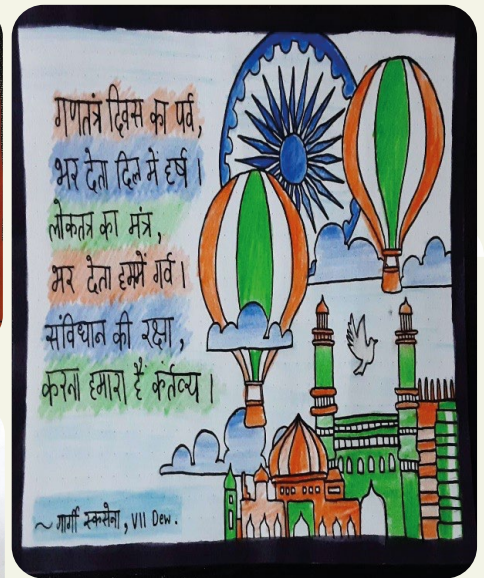 गणतंत्र दिवस का पर्व,
भर देता दिल में हर्ष।
लोकतंत्र का मंत्र,
भर देता हममें गर्व।
संविधान की रक्षा,
करना हमारा हैं कर्तव्य।
~ गार्गी स्कसेना, VII Dew.